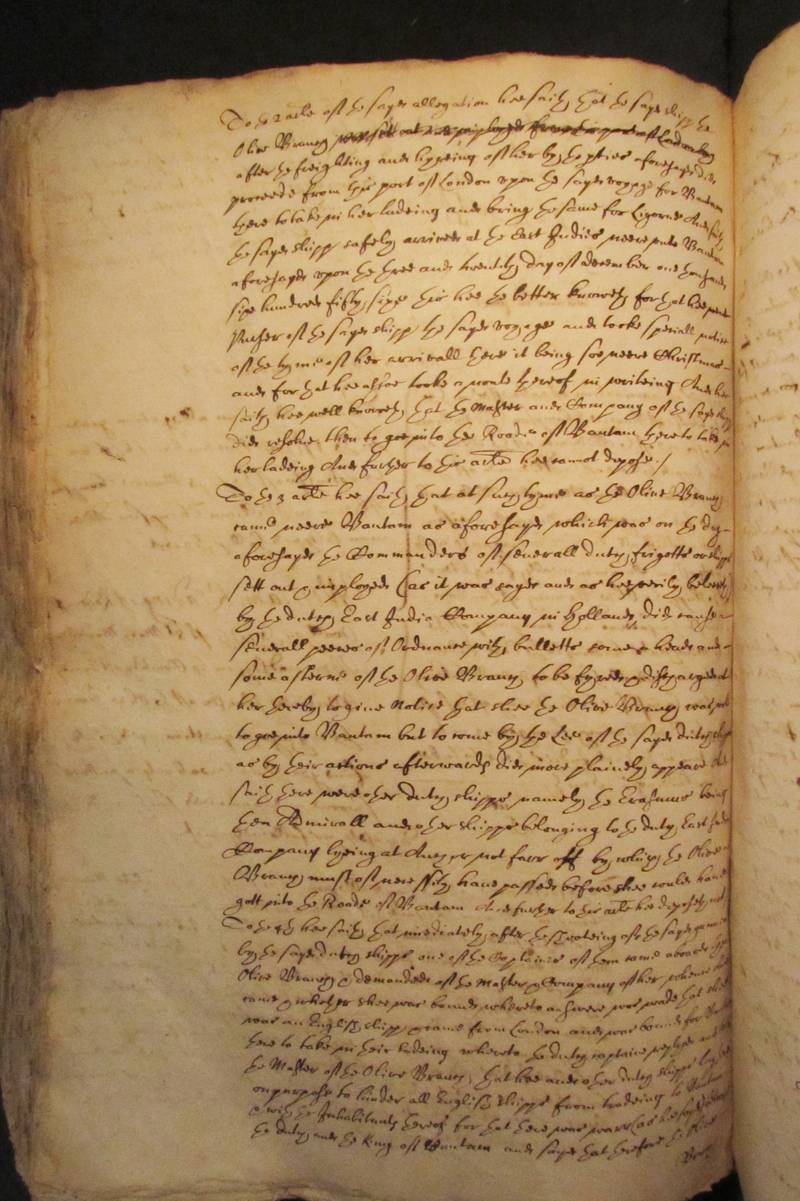 To the 2 article of the sayd allegation hee saith that the sayd shipp the
Olive Branch
after the freighting and hyreing of her by the parties aforesayd did
proceede from this port of London upon the sayd voyage for Bantam
there to take in her ladeing and bring the same for Ligorne And saith
the sayd shipp safely arrived at the East Indies neere unto Bantam
aforesayd upon the three and twentith day of december one thousand
sixe hundred fifty sixe this hee the better knoweth for that hee went
Purser of the sayd shipp the sayd voyage and tooke speciall notice
of the tyme of her arrivall there it being soe neere Christmas
and for that hee alsoe tooke a note thereof in writeing And hee
saith hee well knoweth that the Master and Company of the sayd shipp
did resolve then to goe into the Roade of Bantam there to take in
her ladeing And further to this article hee cannot depose /
To the 3 article hee saith that at such tyme as the Olive Branch
came neere Bantam as aforesayd which was on the day
aforesayd the Commanders of severall dutch frigotts or shipps
sett out & imployed (as it was sayd and as hee verily beleeveth)
by the dutch East India Company in Holland, did cause
severall peeces of Ordnance with bulletts some a head and
some a sterne of the Olive Branch to be fyred & discharged at
her thereby to give notice that shee the Olive Branch was not
to goe into Bantam but to come by the Lee of the sayd dutch shipps
as by their actions afterwards did more plainely appeare And
saith there were other dutch shipps namely the Erasmus being
then Admirall and other shipps belonging to the dutch East India
Company lyeing at Anchor not farr off by which the Olive
Branch must of necessity have passed before shee could have
gott into the Roade of Bantam And further to this article hee deposeth not
To the 4th hee saith that imediately after the shooteing of the sayd gunns
by the sayd dutch shipps one of the Captaines of them came aboard the
Olive Branch & demanded of the Master & Company of her whence shee
came & whether shee was bound, whereto answere was made that shee
was an English shipp & came from London and was bound for Bantam
there to take in their ladeing whereto the dutch captaine replyed
the Master of the Olive Branch, that hee and other dutch shipps lay there
on purpose to hinder all English shipps from tradeing to Bantam
& with the Inhabitants thereof for that there was warr (as hee sayd) betwixt
the dutch and the King of Bantam and sayd that therefore the Olive